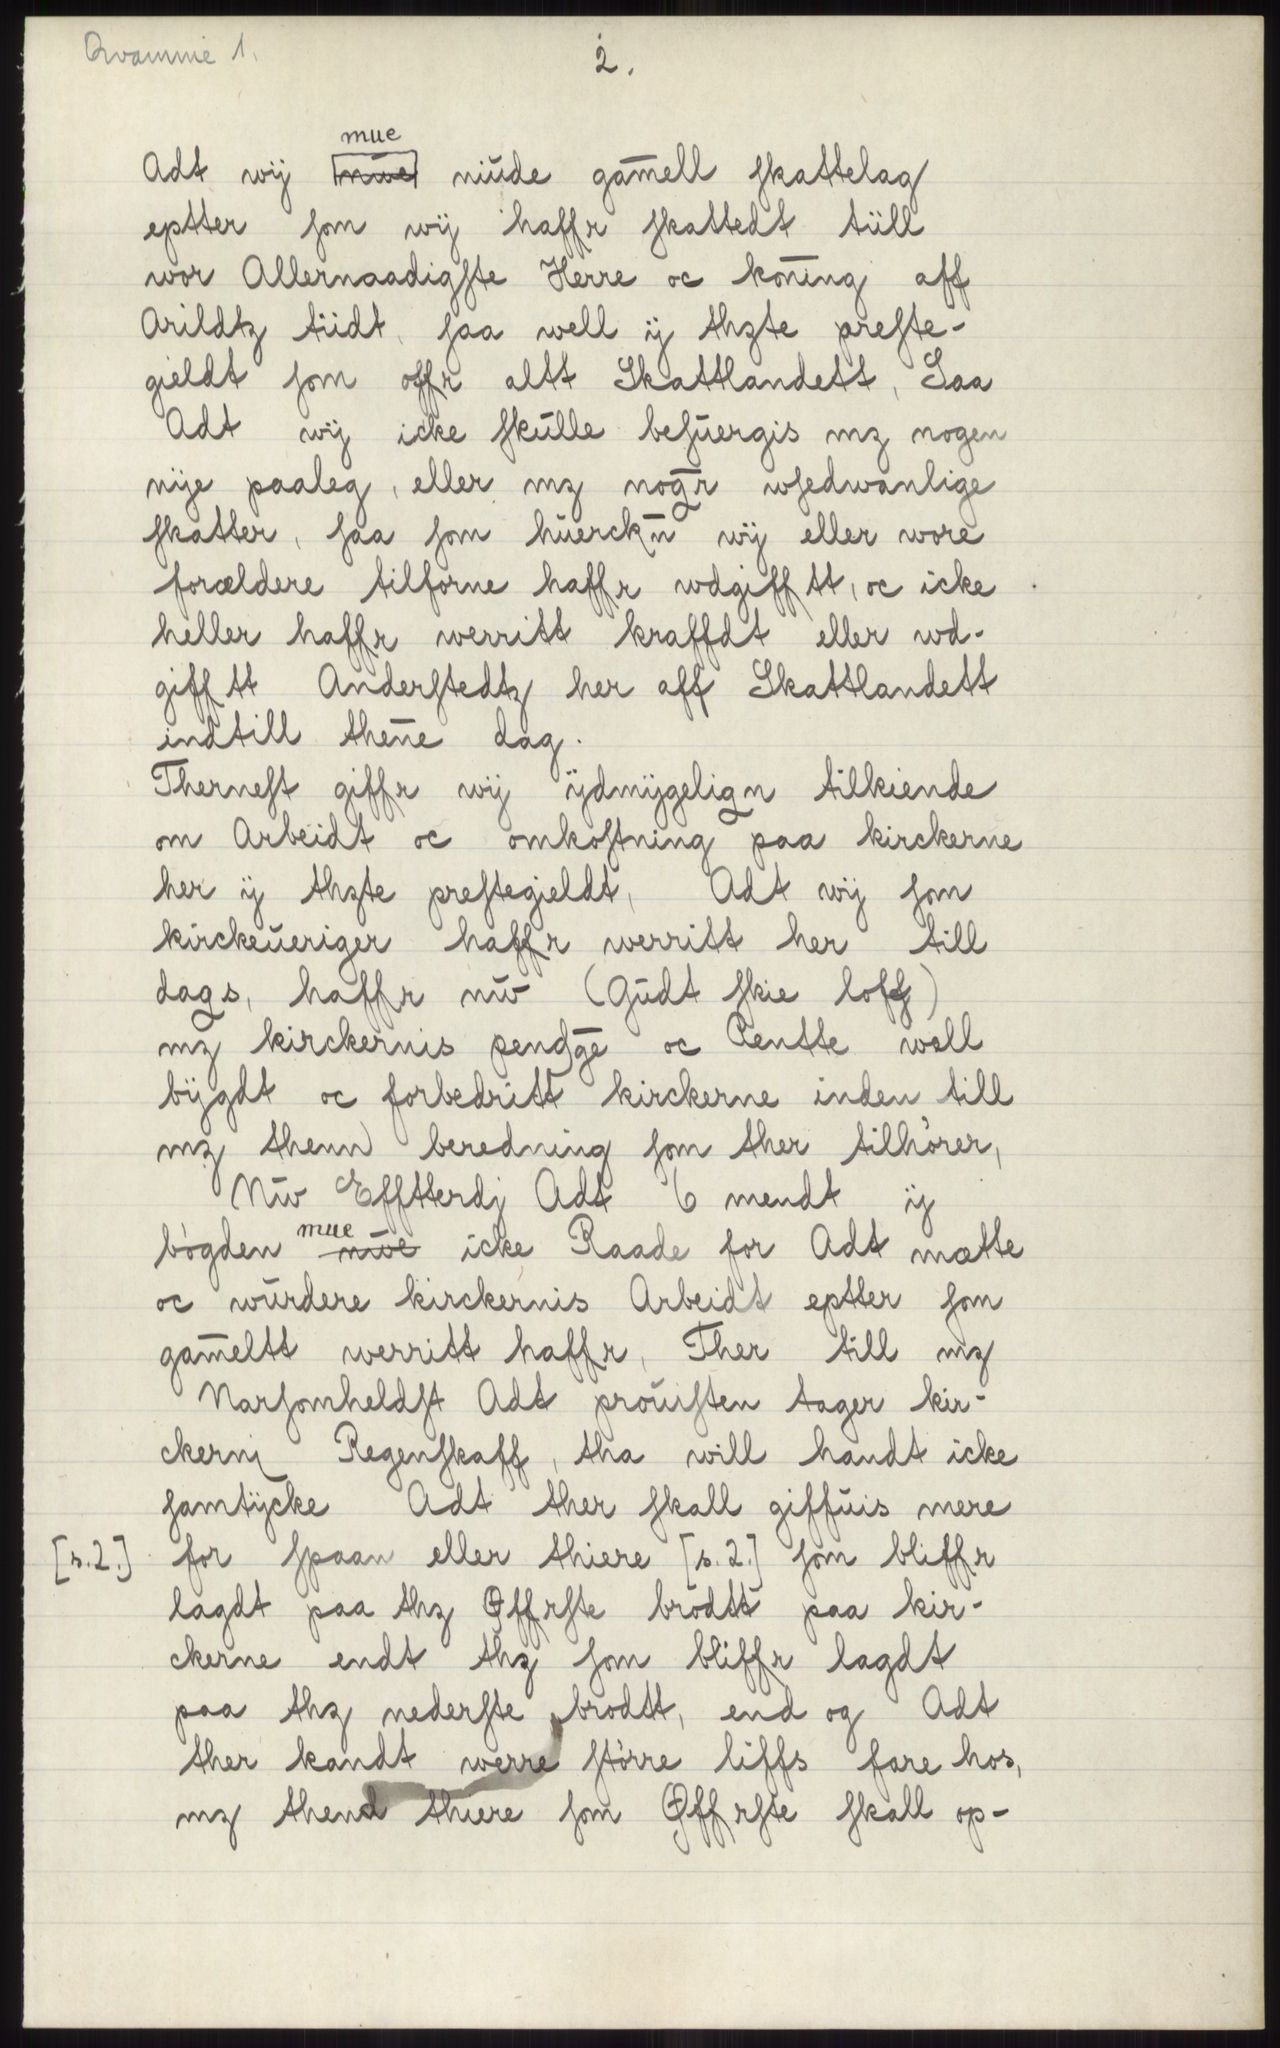 Qvamme 1.
2.
mue
Adt wij nwe niude gam̄ell skattelag
eptter som wij haffr skattedt tiill
wor Allernaadigste Herre oc kon̄ing aff
Arildtz tiidt, saa well ij thzte preste-
gieldt som offr altt Skattlandett, Saa
Adt wij icke skulle besuergis mz nogen
nije paaleg, eller mz nogr̄ wsedwanlige
skatter, saa som huerckn̄ wij eller wore
forældere tilforne haffr wdgifftt, oc icke
heller haffr werritt kraffdt eller wd-
gifftt Anderstedtz her aff Skattlandett
indtill then̄e dag.
Thernest giffr wij ijdmijgelign tilkiende
om Arbeidt oc omkostning paa kirckerne
her ij thzte prestegieldt, Adt wij som
kirckeueriger haffr werritt her till
dags, haffr nw (Gudt skie loff)
mz kirckernis pendge oc Rentte well
bijgdt oc forbedritt kirckerne inden till
mz thenn beredning som ther tilhörer,
Nw Effterdj Adt 6 mendt ij
mue
bögden nwe icke Raade for Adt mætte
oc wurdere kirckernis Arbeidt eptter som
gam̄eltt werritt haffr, Ther till mz
Narsomheldst Adt prouisten tager kir-
ckerni Regenskaff, tha will handt icke
samtijcke Adt ther skall giffuis mere
[s.2.] for spaan eller thiere [s.2.] som bliffr
lagdt paa thz Øffrste brodtt paa kir-
ckerne endt thz som bliffr lagdt
paa thz nederste brodtt, end og Adt
ther kandt werre större liffs fare hos,
mz thend thiere som Øffrste skall op-